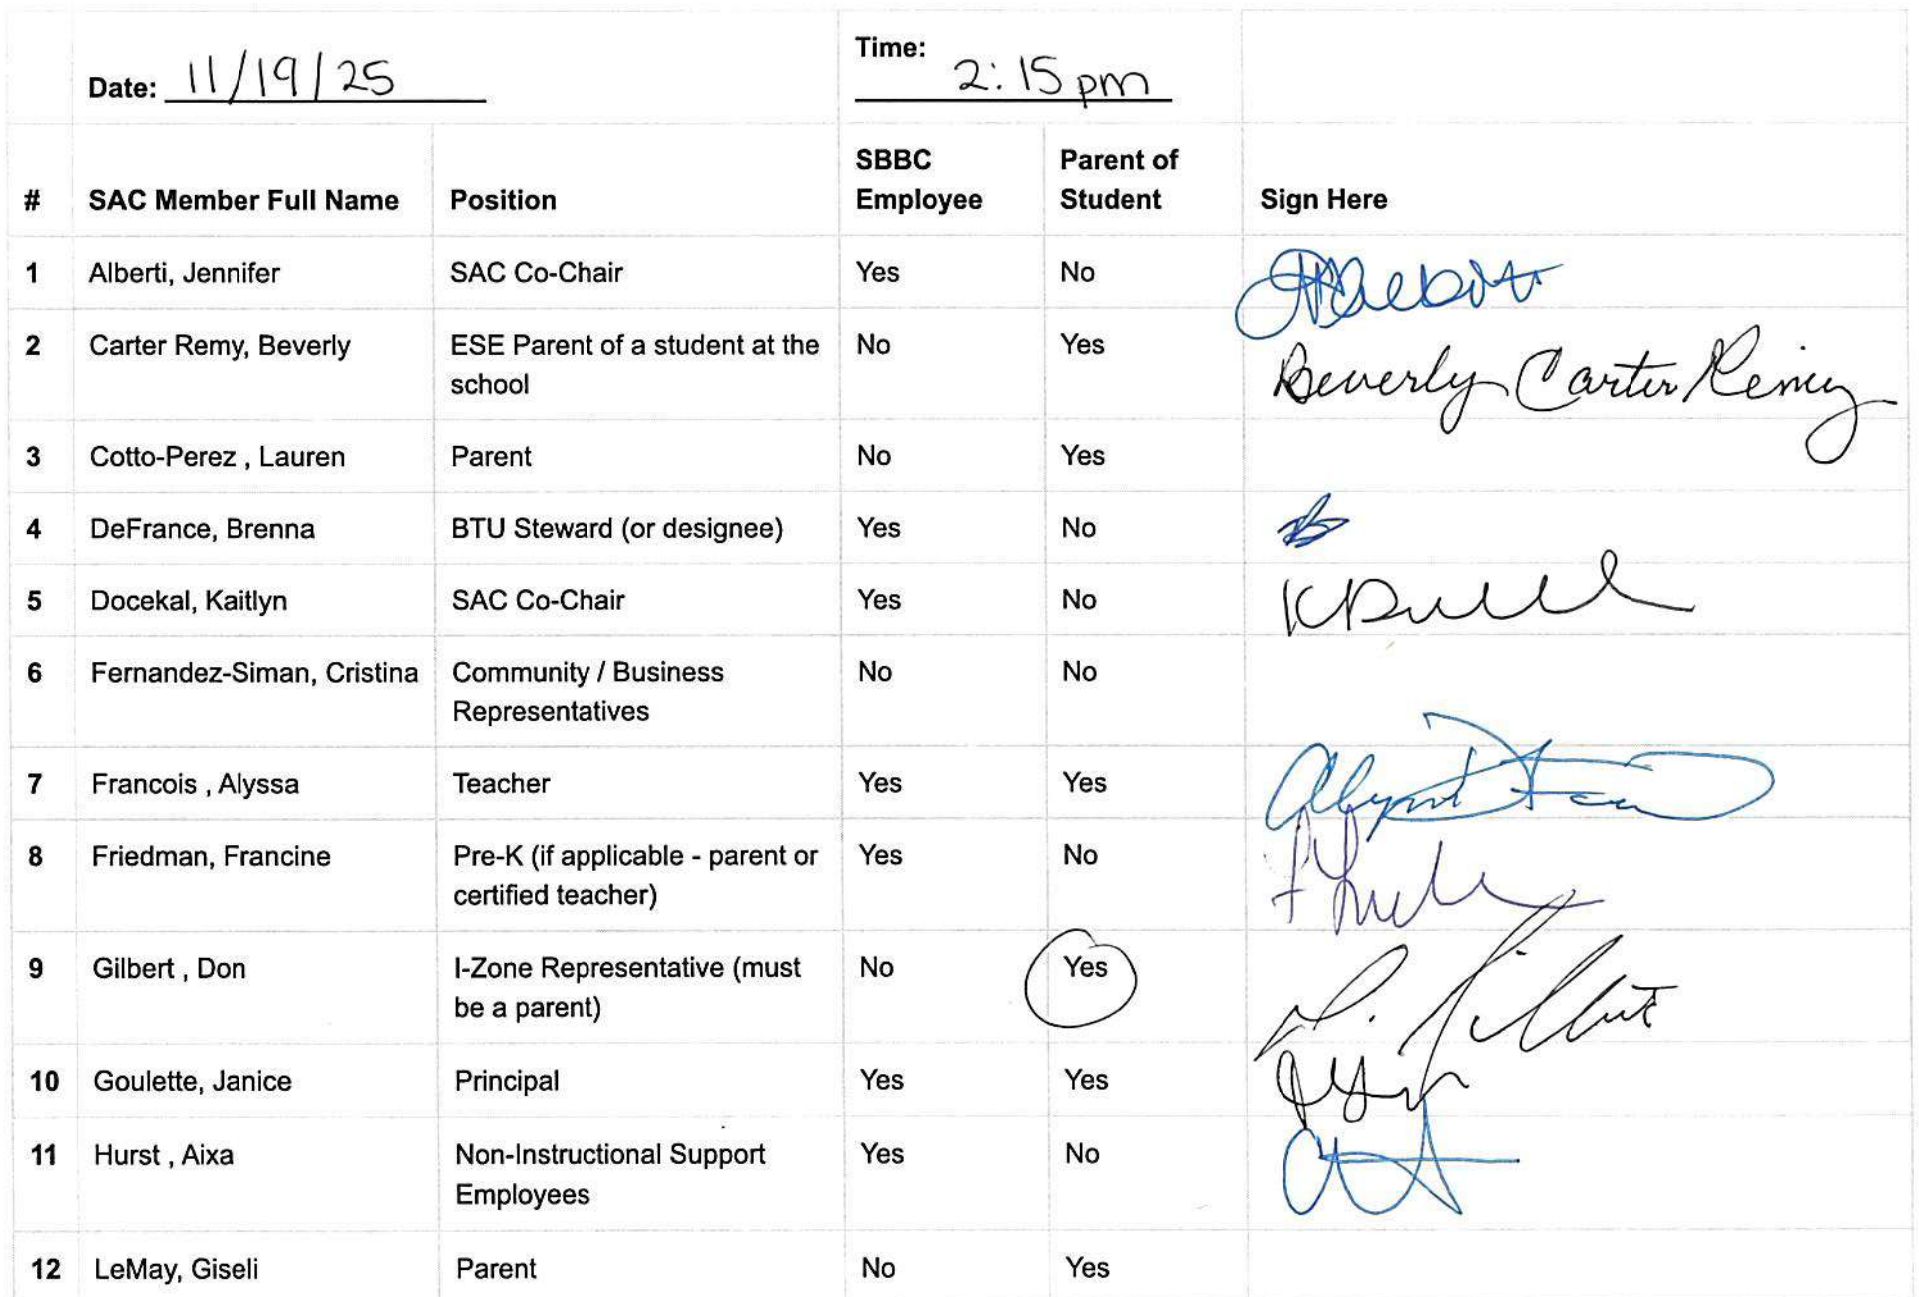 Date: 11/19/25 Time: 2:15pm
# SAC Member Full Name Position SBBC Employee Parent of Student Sign Here
1 Alberti, Jennifer SAC Co-Chair Yes No
2 Carter Remy, Beverly ESE Parent of a student at the school No Yes Beverly Carter Remy
3 Cotto-Perez , Lauren Parent No Yes
4 DeFrance, Brenna BTU Steward (or designee) Yes No
5 Docekal, Kaitlyn SAC Co-Chair Yes No
6 Fernandez-Siman, Cristina Community / Business Representatives No No
7 Francois , Alyssa Teacher Yes Yes
8 Friedman, Francine Pre-K (if applicable - parent or certified teacher) Yes No
9 Gilbert , Don I-Zone Representative (must be a parent) No Yes D. Gilbert
10 Goulette, Janice Principal Yes Yes
11 Hurst , Aixa Non-Instructional Support Employees Yes No
12 LeMay, Giseli Parent No Yes